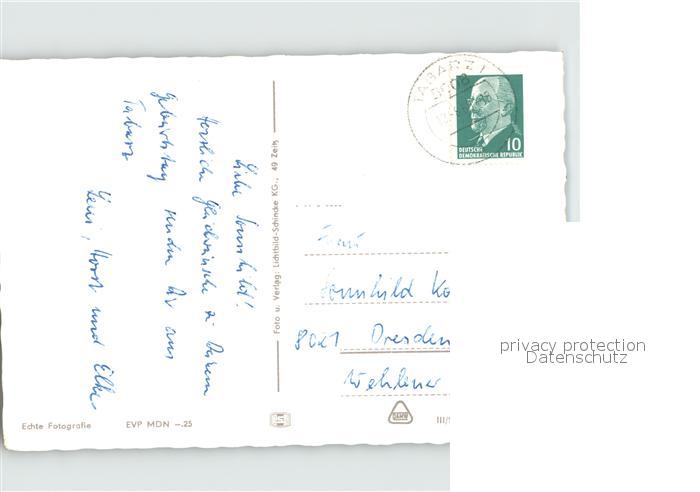 TABARZ 1
5808
DEUTSCHE
DEMOKRATISCHE REPUBLIK
10
Liebe Sonnhild!
Herzliche Glückwünsche zu Deinem
Geburtstag senden Dir aus
Tabarz
Leni, Horst und Elke.
Foto u. Verlag: Lichtbild-Schincke KG., 49 Zeitz
Frau
Sonnhild Ko
8021 Dresden
Wehlener
privacy protection
Datenschutz
Echte Fotografie
EVP MDN –.25
III/